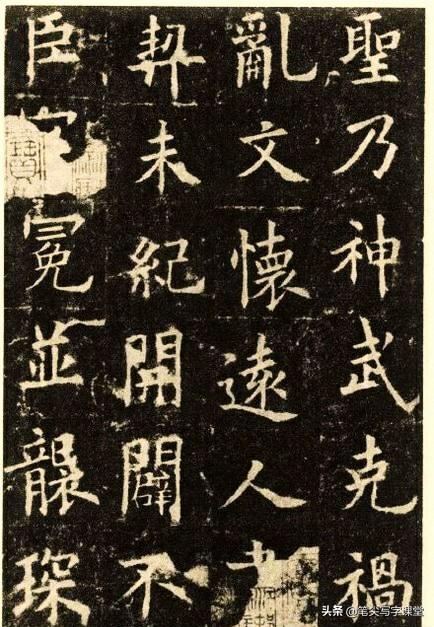 聖乃神武克禍
亂文懷遠人
契未紀開闢不
臣冕並襲琛
头条 @笔尖写字课堂